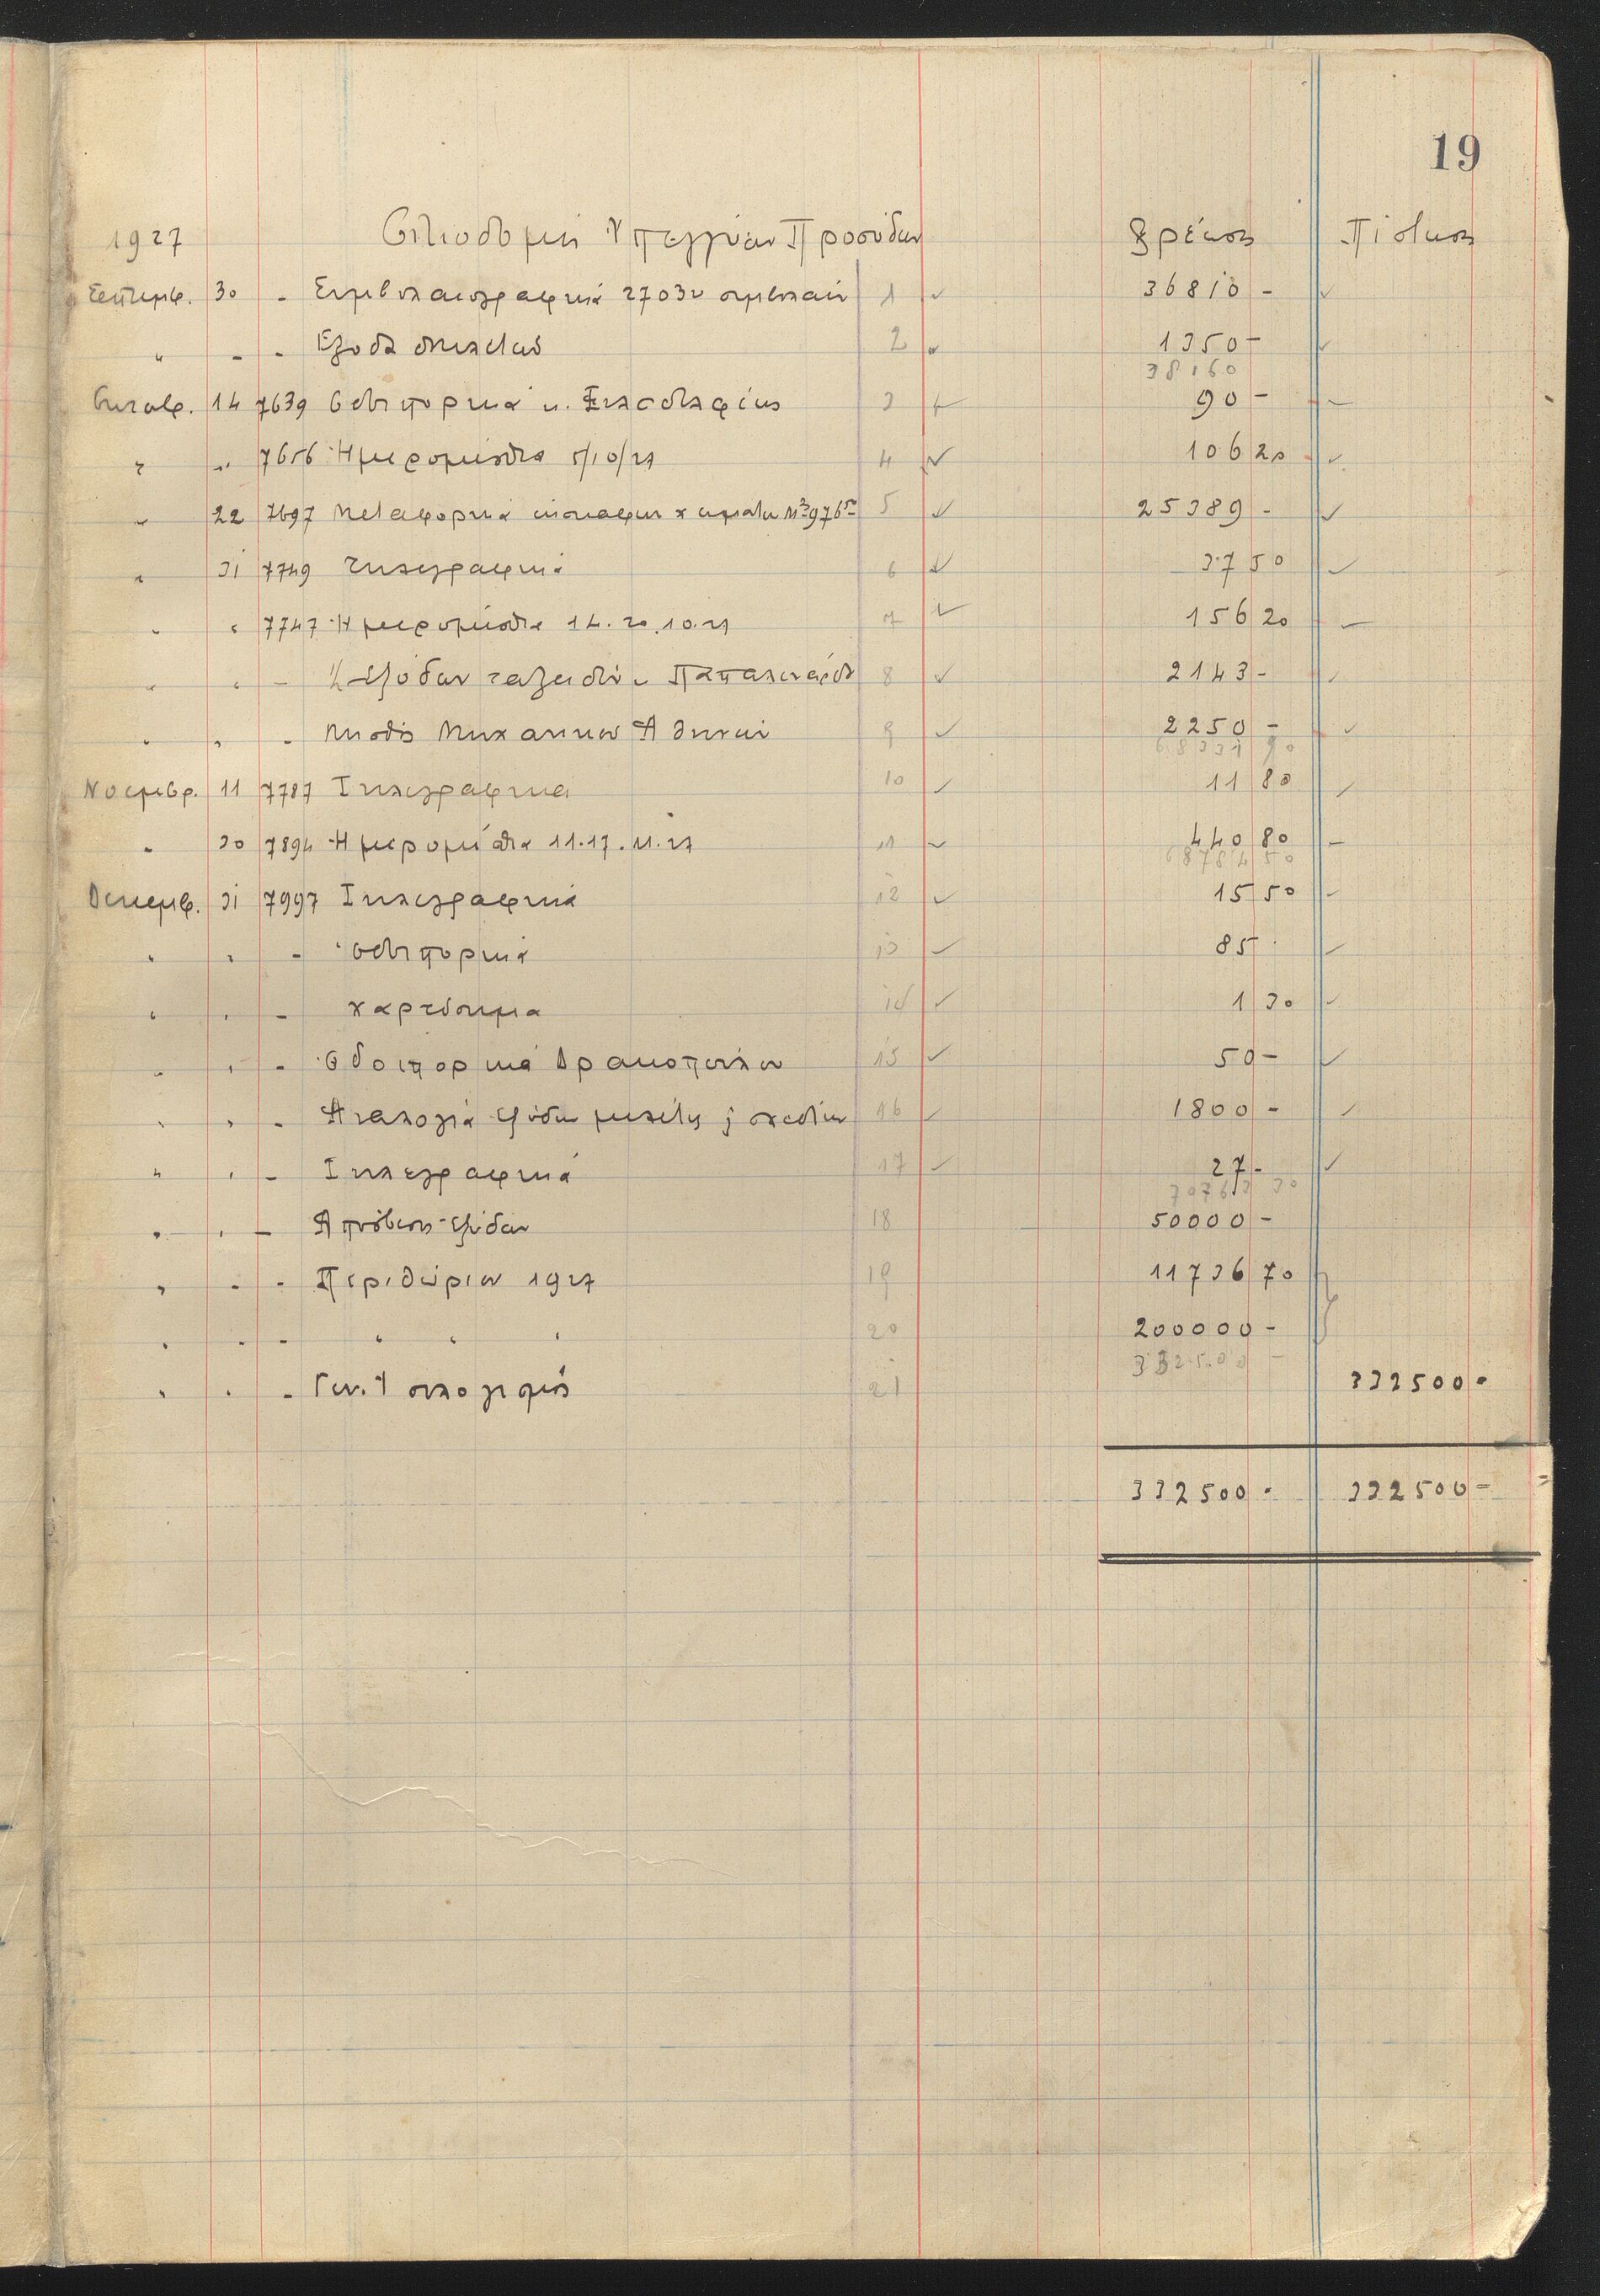 19
1927 Οικοδομή Υπεγγύων Προσόδων Χρέωσις Πίστωσις
Σεπτεμβ. 30 - Συμβολαιογραφικά 27032 συμβολαίου 1 36810 -
" - - Έξοδα 2 1350 -
38160
Οκτωβ. 14 7639 Οδοιπορικά κ. 3 90 -
" " 7656 Ημερομίσθια 5/10/27 4 106 20
" 22 7697 Μεταφορικά εκσκαφών χωμάτων Μ3 976 50 5 25389 -
" 31 7749 Τηλεγραφικά 6 37 50
" " 7747 Ημερομίσθια 14.20.10.27 7 156 20
" " - 1/2 εξόδων ταξειδίου 8 2143 -
" " - Μισθός Μηχανικού Αθηναίου 9 2250 -
68331 90
Νοεμβρ. 11 7787 Τηλεγραφικά 10 11 80
" 30 7894 Ημερομίσθια 11.17.11.27 11 440 80
68784 50
Δεκεμβ. 31 7997 Τηλεγραφικά 12 15 50
" " - Οδοιπορικά 13 85 -
" " - χαρτόσημα 14 1 30
" " - Οδοιπορικά Δρακοπούλου 15 50 -
" " - Αναλογία εξόδων μελέτης & σχεδίων 16 1800 -
" " - Τηλεγραφικά 17 27 -
70763 30
" " - Απόσβεσις εξόδων 18 50000 -
" - - Περιθώριον 1927 19 11736 70
" - - " " " 20 200000 -
332500 -
" " - Γεν. Ισολογισμός 21 332500 -
332500 - 332500 -